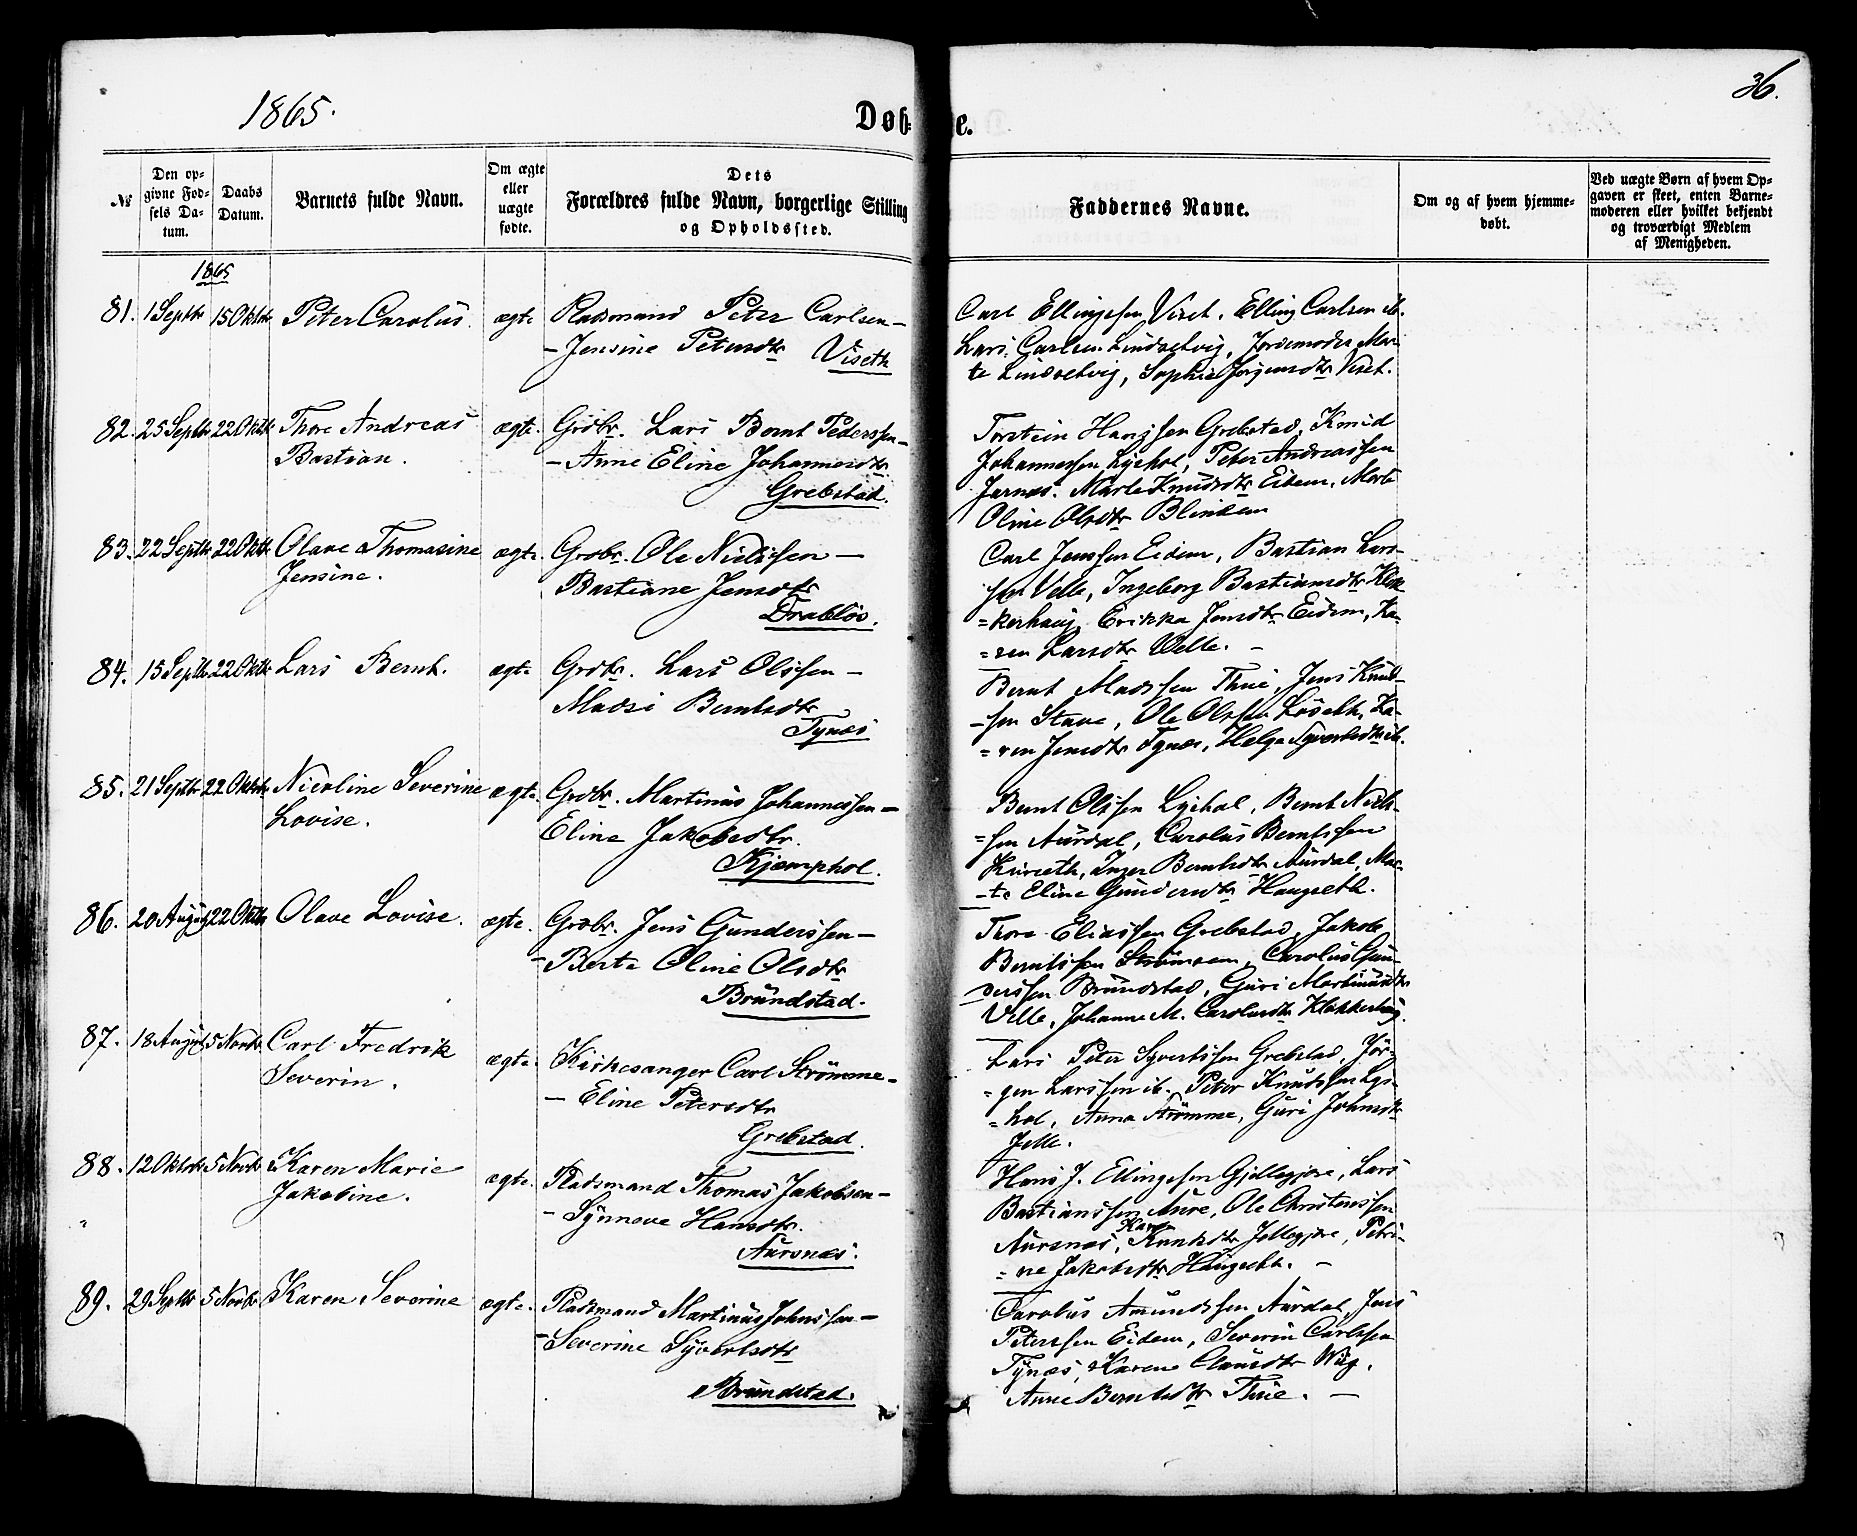 1865.
36.
Døb-
te.
№
Den op-
givne Fød-
sels Da-
tum.
Daabs
Datum.
Barnets fulde Navn.
Om ægte
eller
uægte
fødte.
Dets
Forældres fulde Navn, borgerlige Stilling
og Opholdssted.
Faddernes Navne.
Om og af hvem hjemme-
døbt.
Ved uægte Børn af hvem Op-
gaven er skeet, enten Barne-
moderen eller hvilket bekjendt
og troværdigt Medlem
af Menigheden.
1865
81. 1 Septbr 15 Oktbr Peter Carolus. ægte Pladsmand Peter Carlsen –
– Jensine Petersdtr Viseth
Carl Ellingssen Viset. Elling Carlsen ib.
Lars Carlsen Lindsetvig, Jordemoder Mar-
te Lindsetvig, Sophie Jørgensdtr Viset.
82. 25 Septbr 22 Oktbr Thore Andreas ægte. Grdbr. Lars Bernt Pederssen –
Bastian. – Anne Eline Johannesdtr
Grebstad.
Torstein Hanssen Grebstad, Knud
Johannessen Lyshol, Peter Andreassen
Jarnæs. Marte Knudsdtr Eidem, Marte
Oline Olsdtr Blindem
83. 22 Septbr 22 Oktbr Olave Thomasine ægte. Grdbr. Ole Nielssen –
Jensine. Bastiane Jensdtr
Drabløs.
Carl Jenssen Eidem, Bastian Lars-
sen Velle, Ingeborg Bastiansdtr Klok-
=kerhaug, Erikka Jensdtr Eidem, Ka-
=ren Larsdtr Velle. –
84. 15 Septbr 22 Oktbr Lars Bernt. ægte Grdbr. Lars Olssen –
Madsi Berntsdtr
Tynæs
Bernt Madssen Thue, Jens Knud-
-sen Stave, Ole Olssen Løseth, Ka-
=ren Jensdtr Tynæs, Helga Syvertsdtr ib.
85. 21 Septbr 22 Oktbr Nicoline Severine ægte. Grdbr. Martinus Johannessen –
Lovise. Eline Jakobsdtr.
Kjemphol.
Bernt Olssen Lyshol, Bernt Niels-
=sen Aurdal, Carolus Berntssen
Kurseth, Inger Berntsdtr Aurdal, Mar-
-te Eline Gundersdtr Haugseth.
86. 20 August 22 Oktbr Olave Lovise. ægte. Grdbr. Jens Gunderssen –
– Berte Oline Olsdtr
Brundstad.
Thore Eliassen Grebstad, Jakob
Berntssen Strømmen, Carolus Gun-
derssen Brundstad, Guri Martinusdtr
Velle, Johanne M. Carolusdtr Klokkerhaug.
87. 18 August 5 Novbr. Carl Fredrik ægte. Kirkesanger Carl Strømme –
Severin. – Eline Petersdtr
Grebstad.
Lars Peter Syvertssen Grebstad, Jør-
=gen Larssen ib. Peter Knudssen Lys-
=hol, Anna Strømme, Guri Johnsdtr
Jelle.
88. 12 Oktbr 5 Novbr Karen Marie ægte. Pladsmand Thomas Jakobsen –
Jakobine. – Synneve Hansdtr.
Aursnæs.
Hans J. Ellingssen Gjellegjøre, Lars
Bastianssen Aure, Ole Christenssen
Karen
Aursnæs, Knutsdtr Jellegjøre, Petri-
=ne Jakobsdtr Haugseth. –
89. 29 Septbr 5 Novbr Karen Severine ægte. Pladsmand Martinus Johnssen –
– Severine Syvertsdtr
Brundstad.
Carolus Amundssen Aurdal, Jens
Peterssen Eidem, Severin Carlssen
Tynæs, Karene Clausdtr Wiig.
Anne Berntsdtr Thue. –